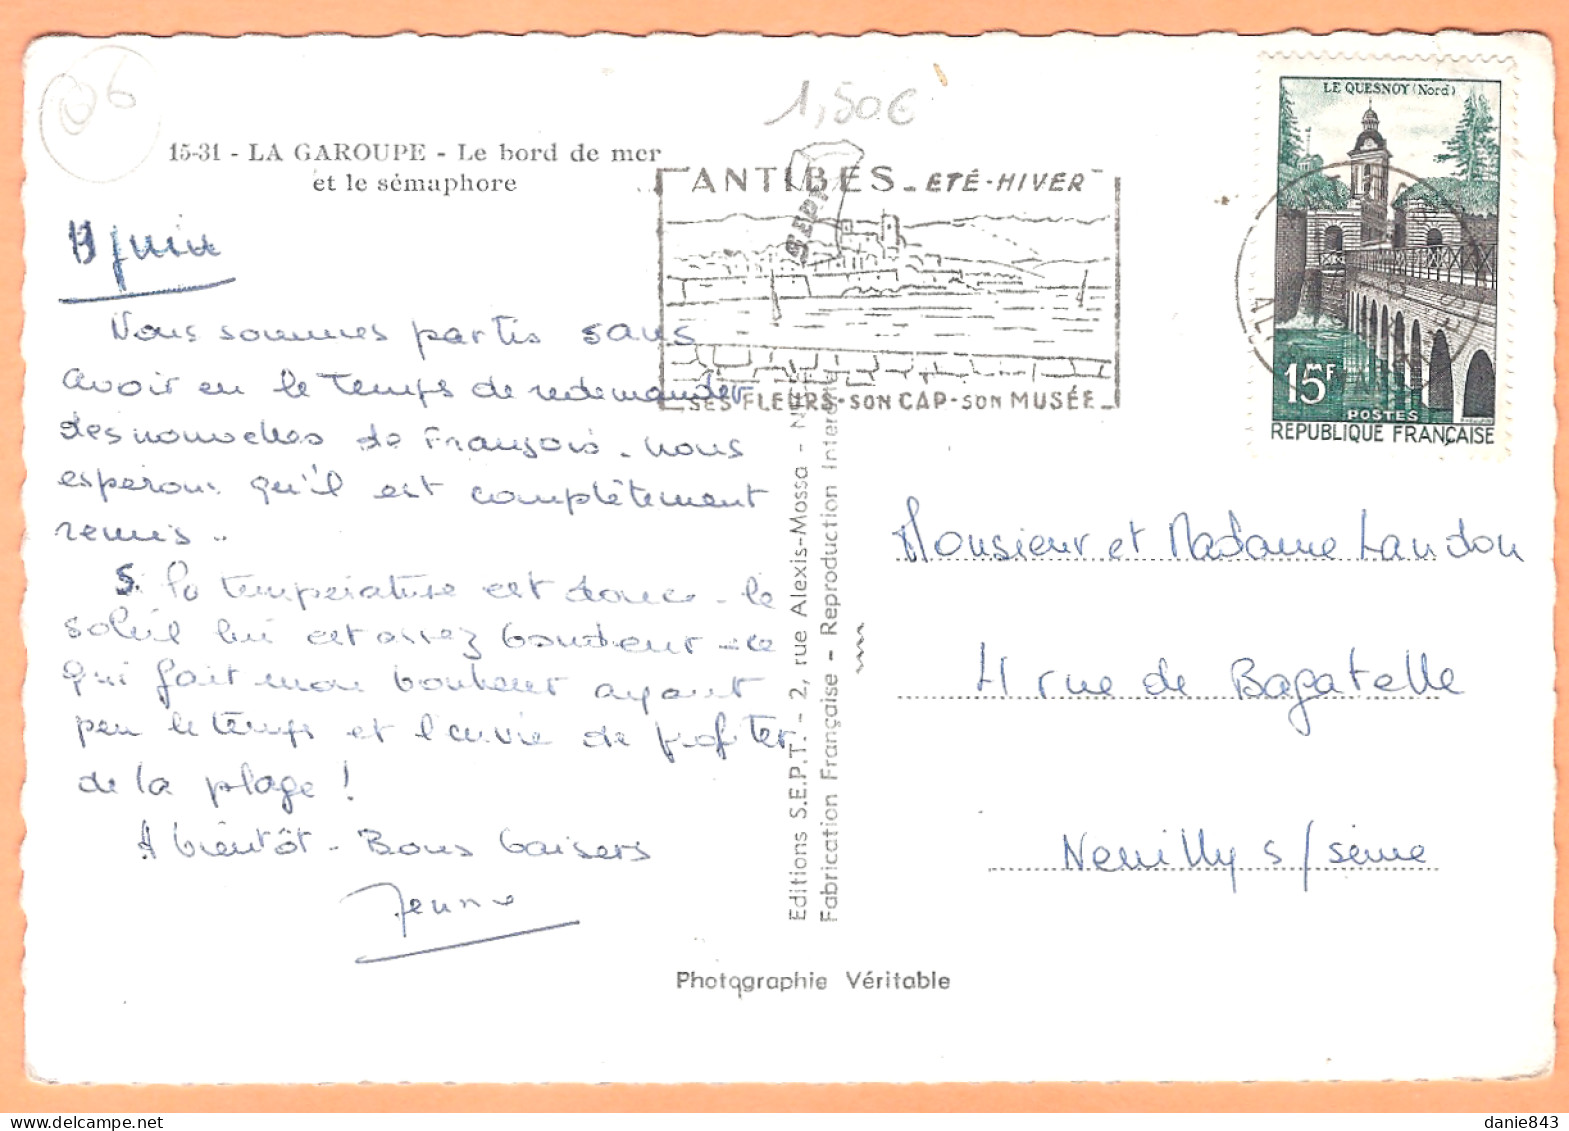 06
1,50€
15-31 - LA GAROUPE - Le bord de mer
et le sémaphore
ANTIBES - ETÉ - HIVER
SES FLEURS - SON CAP - SON MUSÉE
LE QUESNOY (Nord)
15F
POSTES
REPUBLIQUE FRANÇAISE
juin
Nous sommes partis sans
avoir eu le temps de redemander
des nouvelles de François - nous
esperons qu'il est complètement
remis..
Si la température est douce - le
soleil lui est assez boudeur - ce
qui fait mon bonheur ayant
peu le temps et l'envie de profiter
de la plage !
A bientôt - Bons baisers
Monsieur et Madame Landon
rue de Bagatelle
Neuilly s/seine
Editions S.E.P.T. - 2, rue Alexis-Mossa -
Fabrication Française - Reproduction Interdite
SEPT
Photographie Véritable
danie843